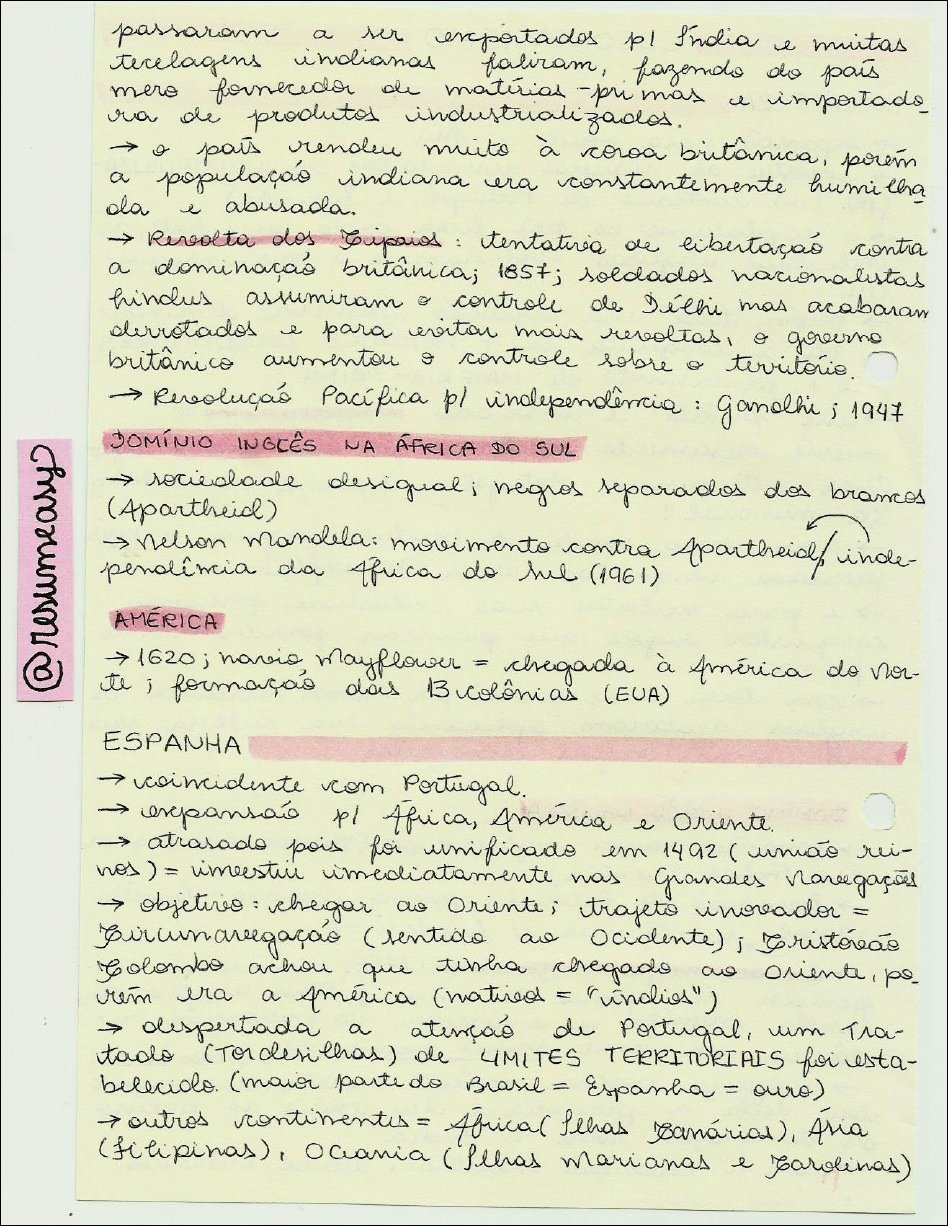 passaram a ser exportados p/ Índia e muitas
tecelagens indianas faliram, fazendo do país
mero fornecedor de matérias-primas e importado-
ra de produtos industrializados.
→ o país rendeu muito à coroa britânica, porém
a população indiana era constantemente humilha-
da e abusada.
→ Revolta dos Cipaios: tentativa de libertação contra
a dominação britânica; 1857; soldados nacionalistas
hindus assumiram o controle de Délhi mas acabaram
derrotados e para evitar mais revoltas, o governo
britânico aumentou o controle sobre o território.
→ Revolução Pacífica p/ independência: Gandhi; 1947
DOMÍNIO INGLÊS NA ÁFRICA DO SUL
→ sociedade desigual; negros separados dos brancos
(Apartheid)
→ Nelson Mandela: movimento contra Apartheid/ inde-
pendência da África do Sul (1961)
AMÉRICA
→ 1620; navio Mayflower = chegada à América do Nor-
te; formação das 13 colônias (EUA)
ESPANHA
→ coincidente com Portugal.
→ expansão p/ África, América e Oriente.
→ atrasado pois foi unificado em 1492 (união rei-
nos) = investiu imediatamente nas Grandes Navegações
→ objetivo: chegar ao Oriente; trajeto inovador =
Circunavegação (sentido ao Ocidente); Cristóvão
Colombo achou que tinha chegado ao Oriente, po-
rém era a América (nativos = "índios")
→ despertada a atenção de Portugal, um Tra-
tado (Tordesilhas) de LIMITES TERRITORIAIS foi esta-
belecido. (maior parte do Brasil = Espanha = ouro)
→ outros continentes = África (Ilhas Canárias), Ásia
(Filipinas), Oceania (Ilhas Marianas e Carolinas)
@resumeasy